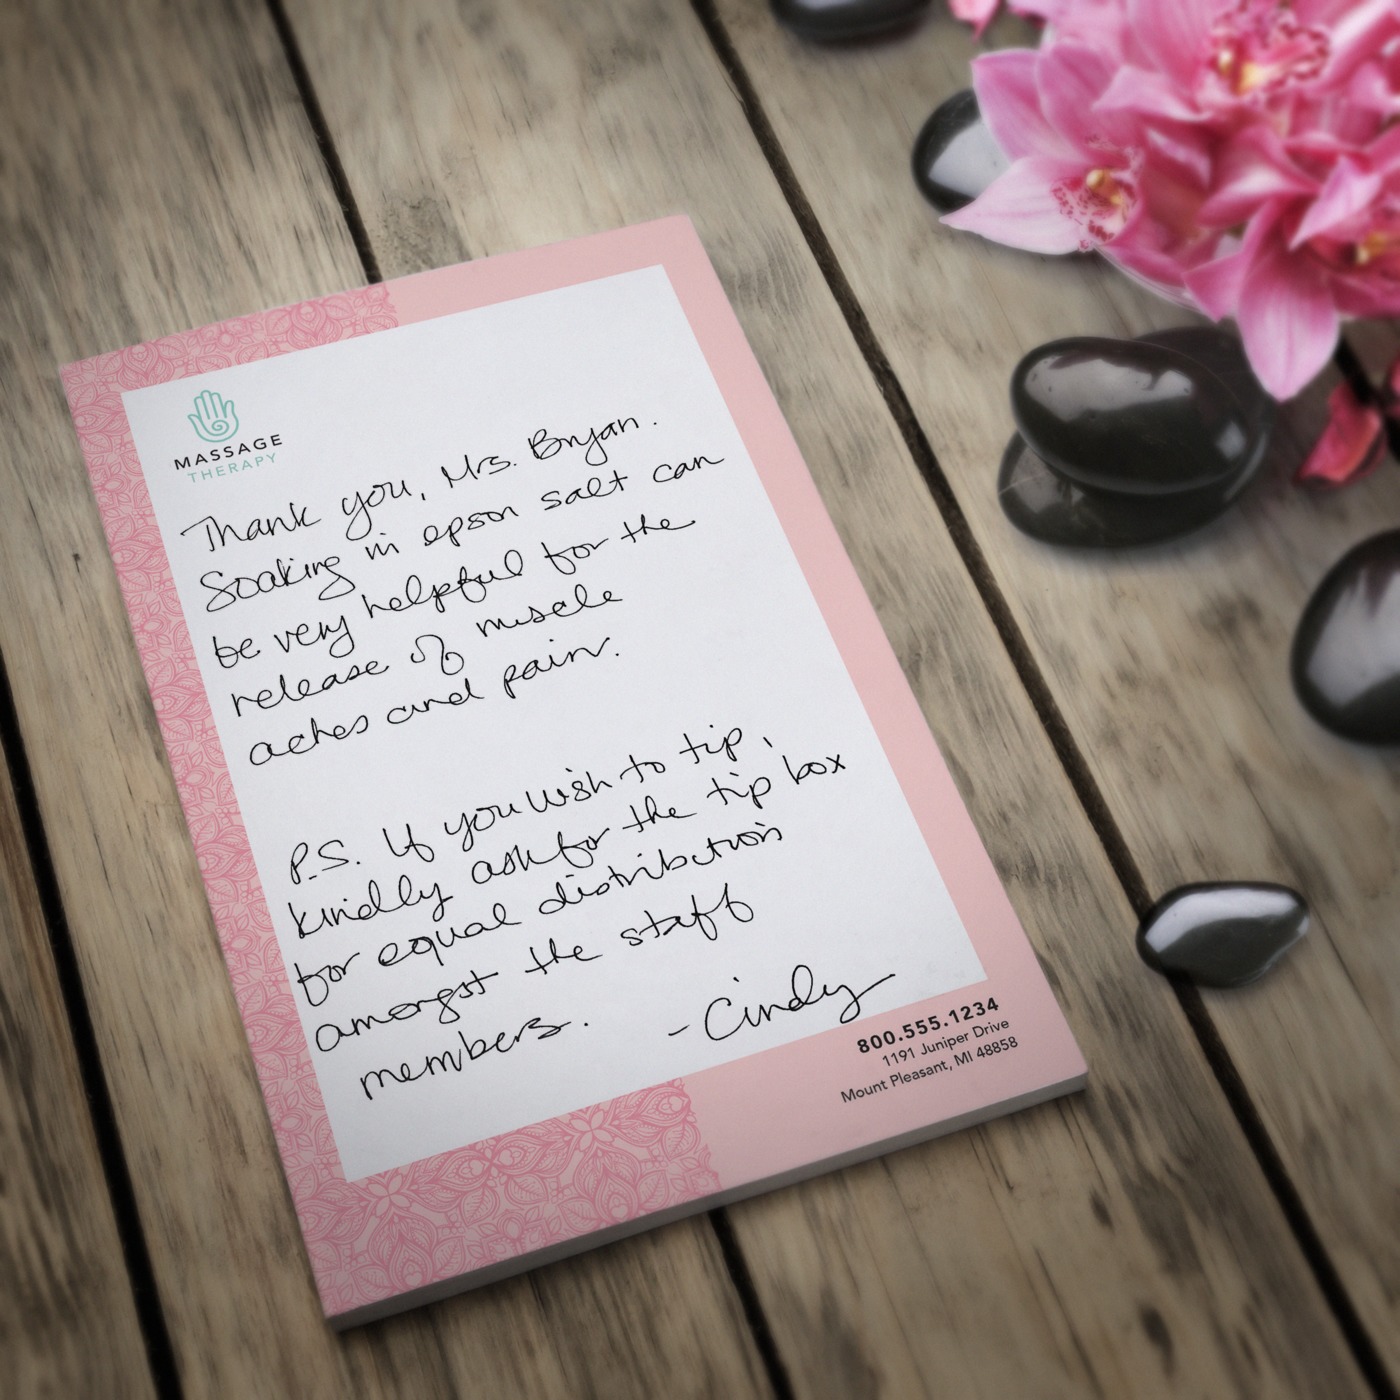 MASSAGE
THERAPY
Thank you, Mrs. Bryan.
Soaking in epson salt can
be very helpful for the
release of muscle
aches and pain.
P.S. If you wish to tip,
kindly ask for the tip box
for equal distribution
amongst the staff
members.
-Cindy
800.555.1234
1191 Juniper Drive
Mount Pleasant, MI 48858